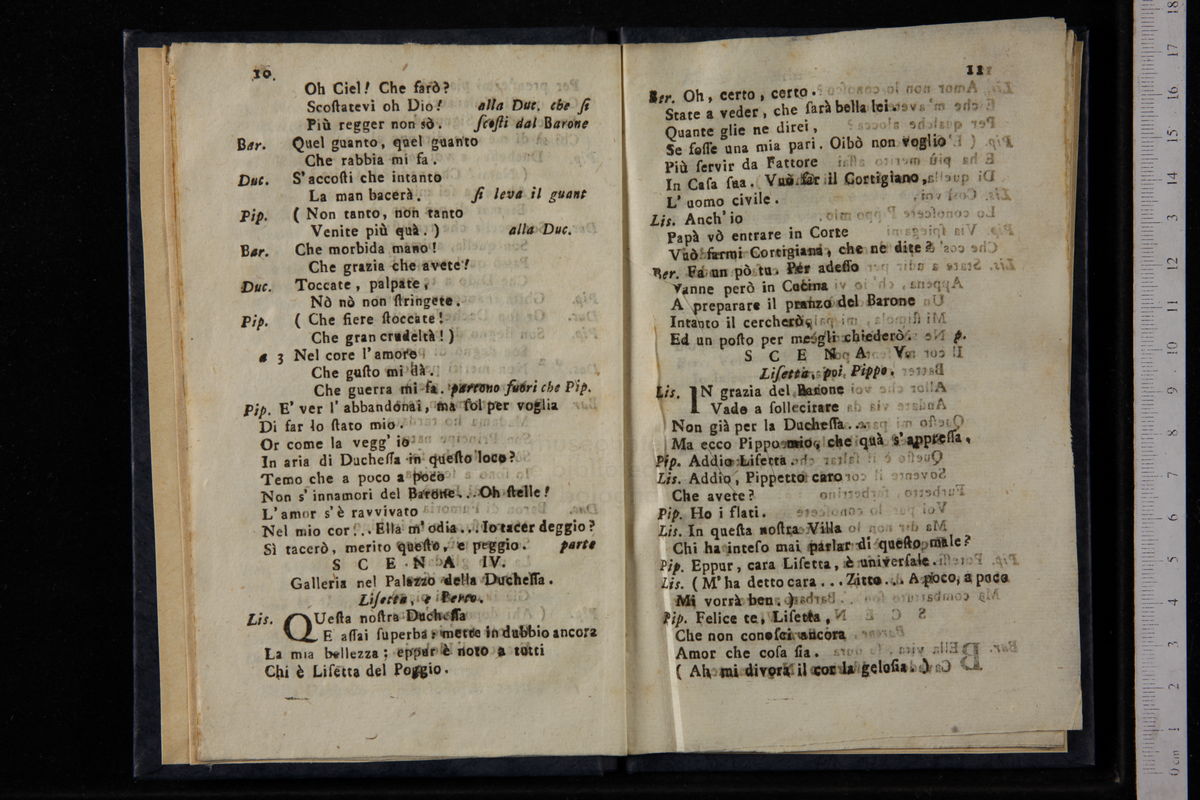 10.
Oh Ciel! Che farò?
Scoſtatevi oh Dio! alla Duc. che ſi
Più regger non sò. ſcoſti dal Barone
Bar. Quel guanto, quel guanto
Che rabbia mi fa.
Duc. S'accoſti che intanto
La man bacerà. ſi leva il guant
Pip. ( Non tanto, non tanto
Venite più quà. ) alla Duc.
Bar. Che morbida mano!
Che grazia che avete!
Duc. Toccate, palpate,
Nò nò non ſtringete.
Pip. ( Che fiere ſtoccate!
Che gran crudeltà! )
a 3 Nel core l'amore
Che guſto mi dà.
Che guerra mi fa. partono fuori che Pip.
Pip. E' ver l'abbandonai, ma fol per voglia
Di far lo ſtato mio.
Or come la vegg' io
In aria di Ducheſſa in queſto loco?
Temo che a poco a poco
Non s'innamori del Barone... Oh ſtelle!
L'amor s'è ravvivato
Nel mio cor... Ella m'odia... Io tacer deggio?
Sì tacerò, merito queſto, e peggio. parte
S C E N A IV.
Galleria nel Palazzo della Ducheſſa.
Liſetta, e Berto.
Lis. QUeſta noſtra Ducheſſa
E aſſai ſuperba: mette in dubbio ancora
La mia bellezza; eppur è noto a tutti
Chi è Liſetta del Poggio.
11
Ber. Oh, certo, certo.
State a veder, che ſarà bella lei.
Quante glie ne direi,
Se foſſe una mia pari. Oibò non voglio
Più ſervir da Fattore
In Caſa ſua. Vuò far il Cortigiano,
L'uomo civile.
Lis. Anch'io
Papà vò entrare in Corte
Vuò farmi Cortigiana, che ne dite?
Ber. Fa un pò tu. Per adeſſo
Vanne però in Cucina
A preparare il pranzo del Barone
Intanto il cercherò,
Ed un poſto per me gli chiederò. p.
S C E N A V.
Liſetta, poi Pippo.
Lis. IN grazia del Barone
Vado a ſollecitare
Non già per la Ducheſſa...
Ma ecco Pippo mio, che quà s'appreſſa.
Pip. Addio Liſetta.
Lis. Addio, Pippetto caro
Che avete?
Pip. Ho i flati.
Lis. In queſta noſtra Villa
Chi ha inteſo mai parlar di queſto male?
Pip. Eppur, cara Liſetta, è univerſale.
Lis. ( M'ha detto cara... Zitto... A poco, a poco
Mi vorrà ben. )
Pip. Felice te, Liſetta,
Che non conoſci ancora
Amor che coſa ſia.
( Ah mi divora il cor la geloſia. )